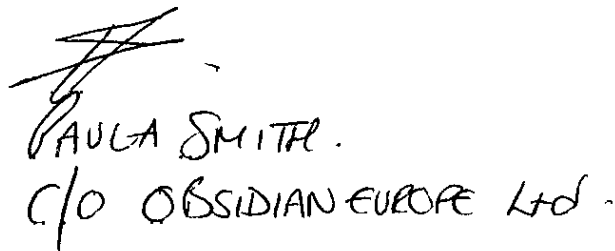 PAULA SMITH.
C/O OBSIDIAN EUROPE Ltd.